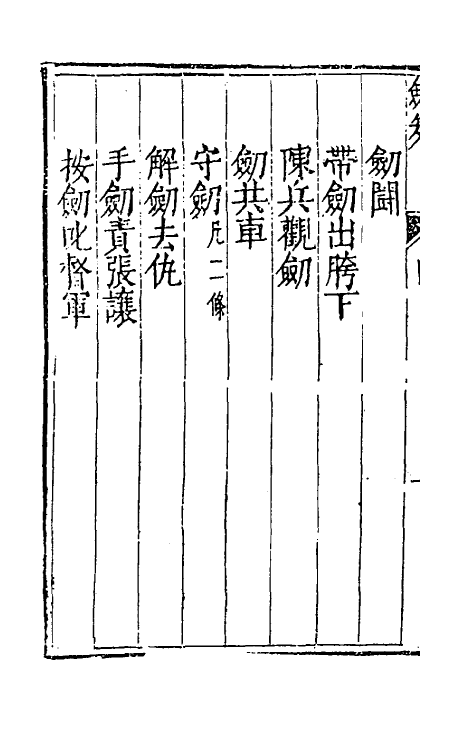 劒鬭
帶劒出胯下
陳兵觀劒
劒共車
守劒凡二條
解劒去仇
手劒責張讓
按劒叱督軍